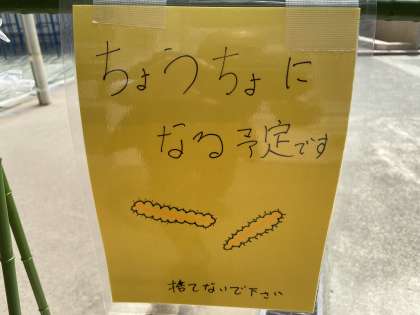 ちょうちょに
なる予定です
捨てないで下さい